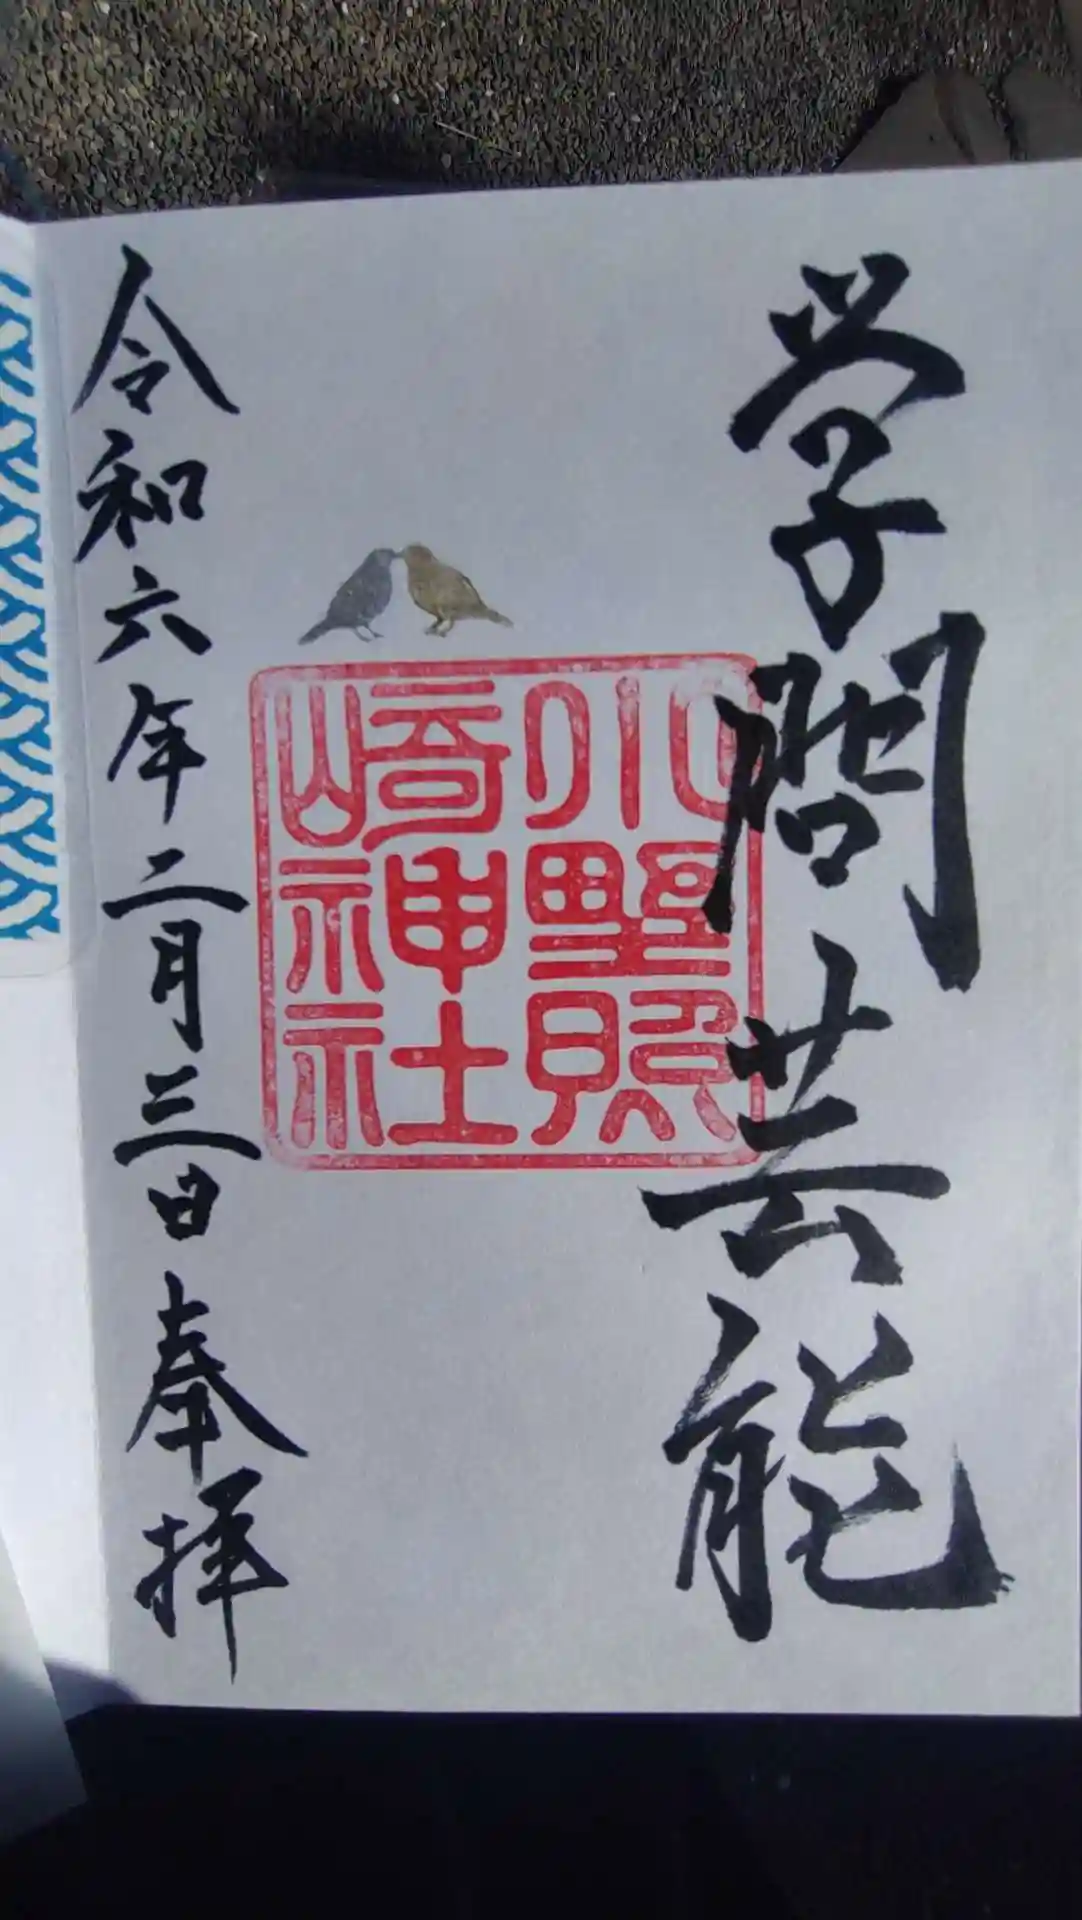 学問芸能
小野照
崎神社
令和六年二月三日奉拝